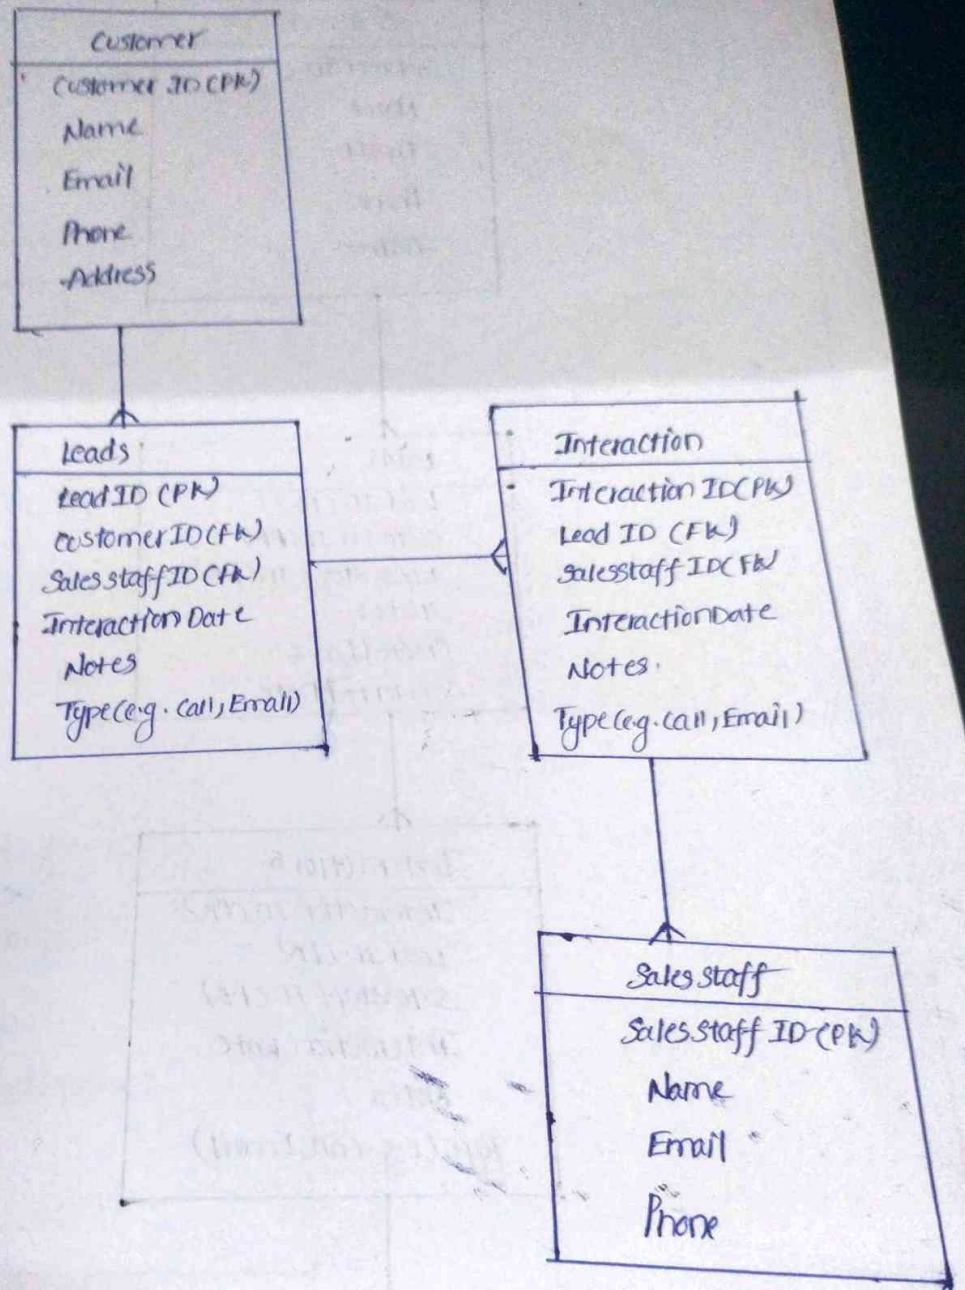 Customer
Customer ID (PK)
Name
Email
Phone
Address
Leads
Lead ID (PK)
Customer ID (FK)
Sales staff ID (FK)
Interaction Date
Notes
Type (e.g. Call, Email)
Interaction
Interaction ID (PK)
Lead ID (FK)
Sales staff ID (FK)
Interaction Date
Notes.
Type (e.g. Call, Email)
Sales staff
Sales staff ID (PK)
Name
Email
Phone